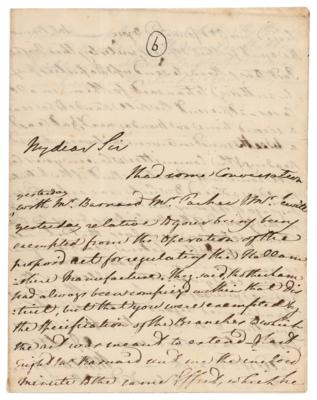 6
My dear Sir
I had some Conversation
yesterday
with Mr. Barnard Mr. Parker & Mr.
yesterday relative to your being being
exempted from the Operation of the
proposed act for regulating the Hallam
shire Manufacture. They said, Rotherham
had always been comprized within that Dis
trict, but that you were exempted by
the Specification of the Branches to which
the act was meant to extend - last
night Mr. Barnard sent me the inclosed
minute to the same Effect, which he